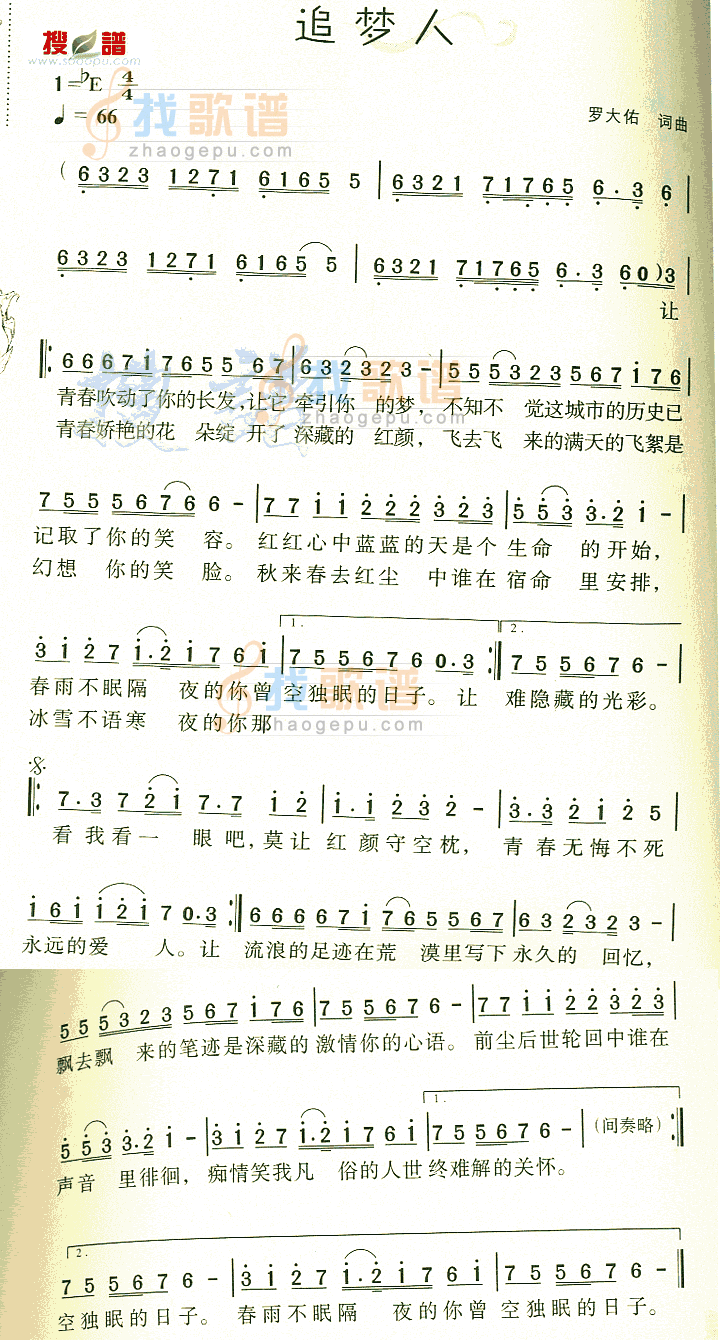 搜谱
www.sooopu.com
追梦人
1=♭E 4/4
♩=66
找歌谱
zhaogepu.com
罗大佑 词曲
(6323 1271 6165 5 | 6321 71765 6.3 6 |
6323 1271 6165 5 | 6321 71765 6.3 60)3 |
让
6667i 7655 67 | 632323 - | 555323567i76
青春吹动了你的长发,让它 牵引你 的梦, 不知不 觉这城市的历史已
青春娇艳的花 朵绽 开了 深藏的 红颜, 飞去飞 来的满天的飞絮是
7555676 6 - | 77ii222323 | 553 3.2i - |
记取了你的笑 容。 红红心中蓝蓝的天是个 生命 的开始,
幻想 你的笑 脸。 秋来春去红尘 中谁在 宿命 里安排,
1. 2.
3i27 i.2i76i | 7555676 0.3 :| 755676 - |
春雨不眠隔 夜的你曾 空独眠的日子。 让 难隐藏的光彩。
冰雪不语寒 夜的你那
7.3 72i 7.7 i2 | i.i232 - | 3.32i25 |
看我看一 眼吧, 莫让 红颜守空枕, 青春无悔不死
i6i i2i7 0.3 :| 66667i 7655567 | 632323 - |
永远的爱 人。让 流浪的足迹在荒 漠里写下 永久的 回忆,
555323567i76 | 755676 - | 77ii22323 |
飘去飘 来的笔迹是深藏的 激情你的心语。 前尘后世轮回中谁在
1.
553 3.2i - | 3i27 i.2i76i | 755676 - (间奏略) :|
声音 里徘徊, 痴情笑我凡 俗的人世 终难解的关怀。
2.
755676 - | 3i27 i.2i76i | 755676 - |
空独眠的日子。 春雨不眠隔 夜的你曾 空独眠的日子。